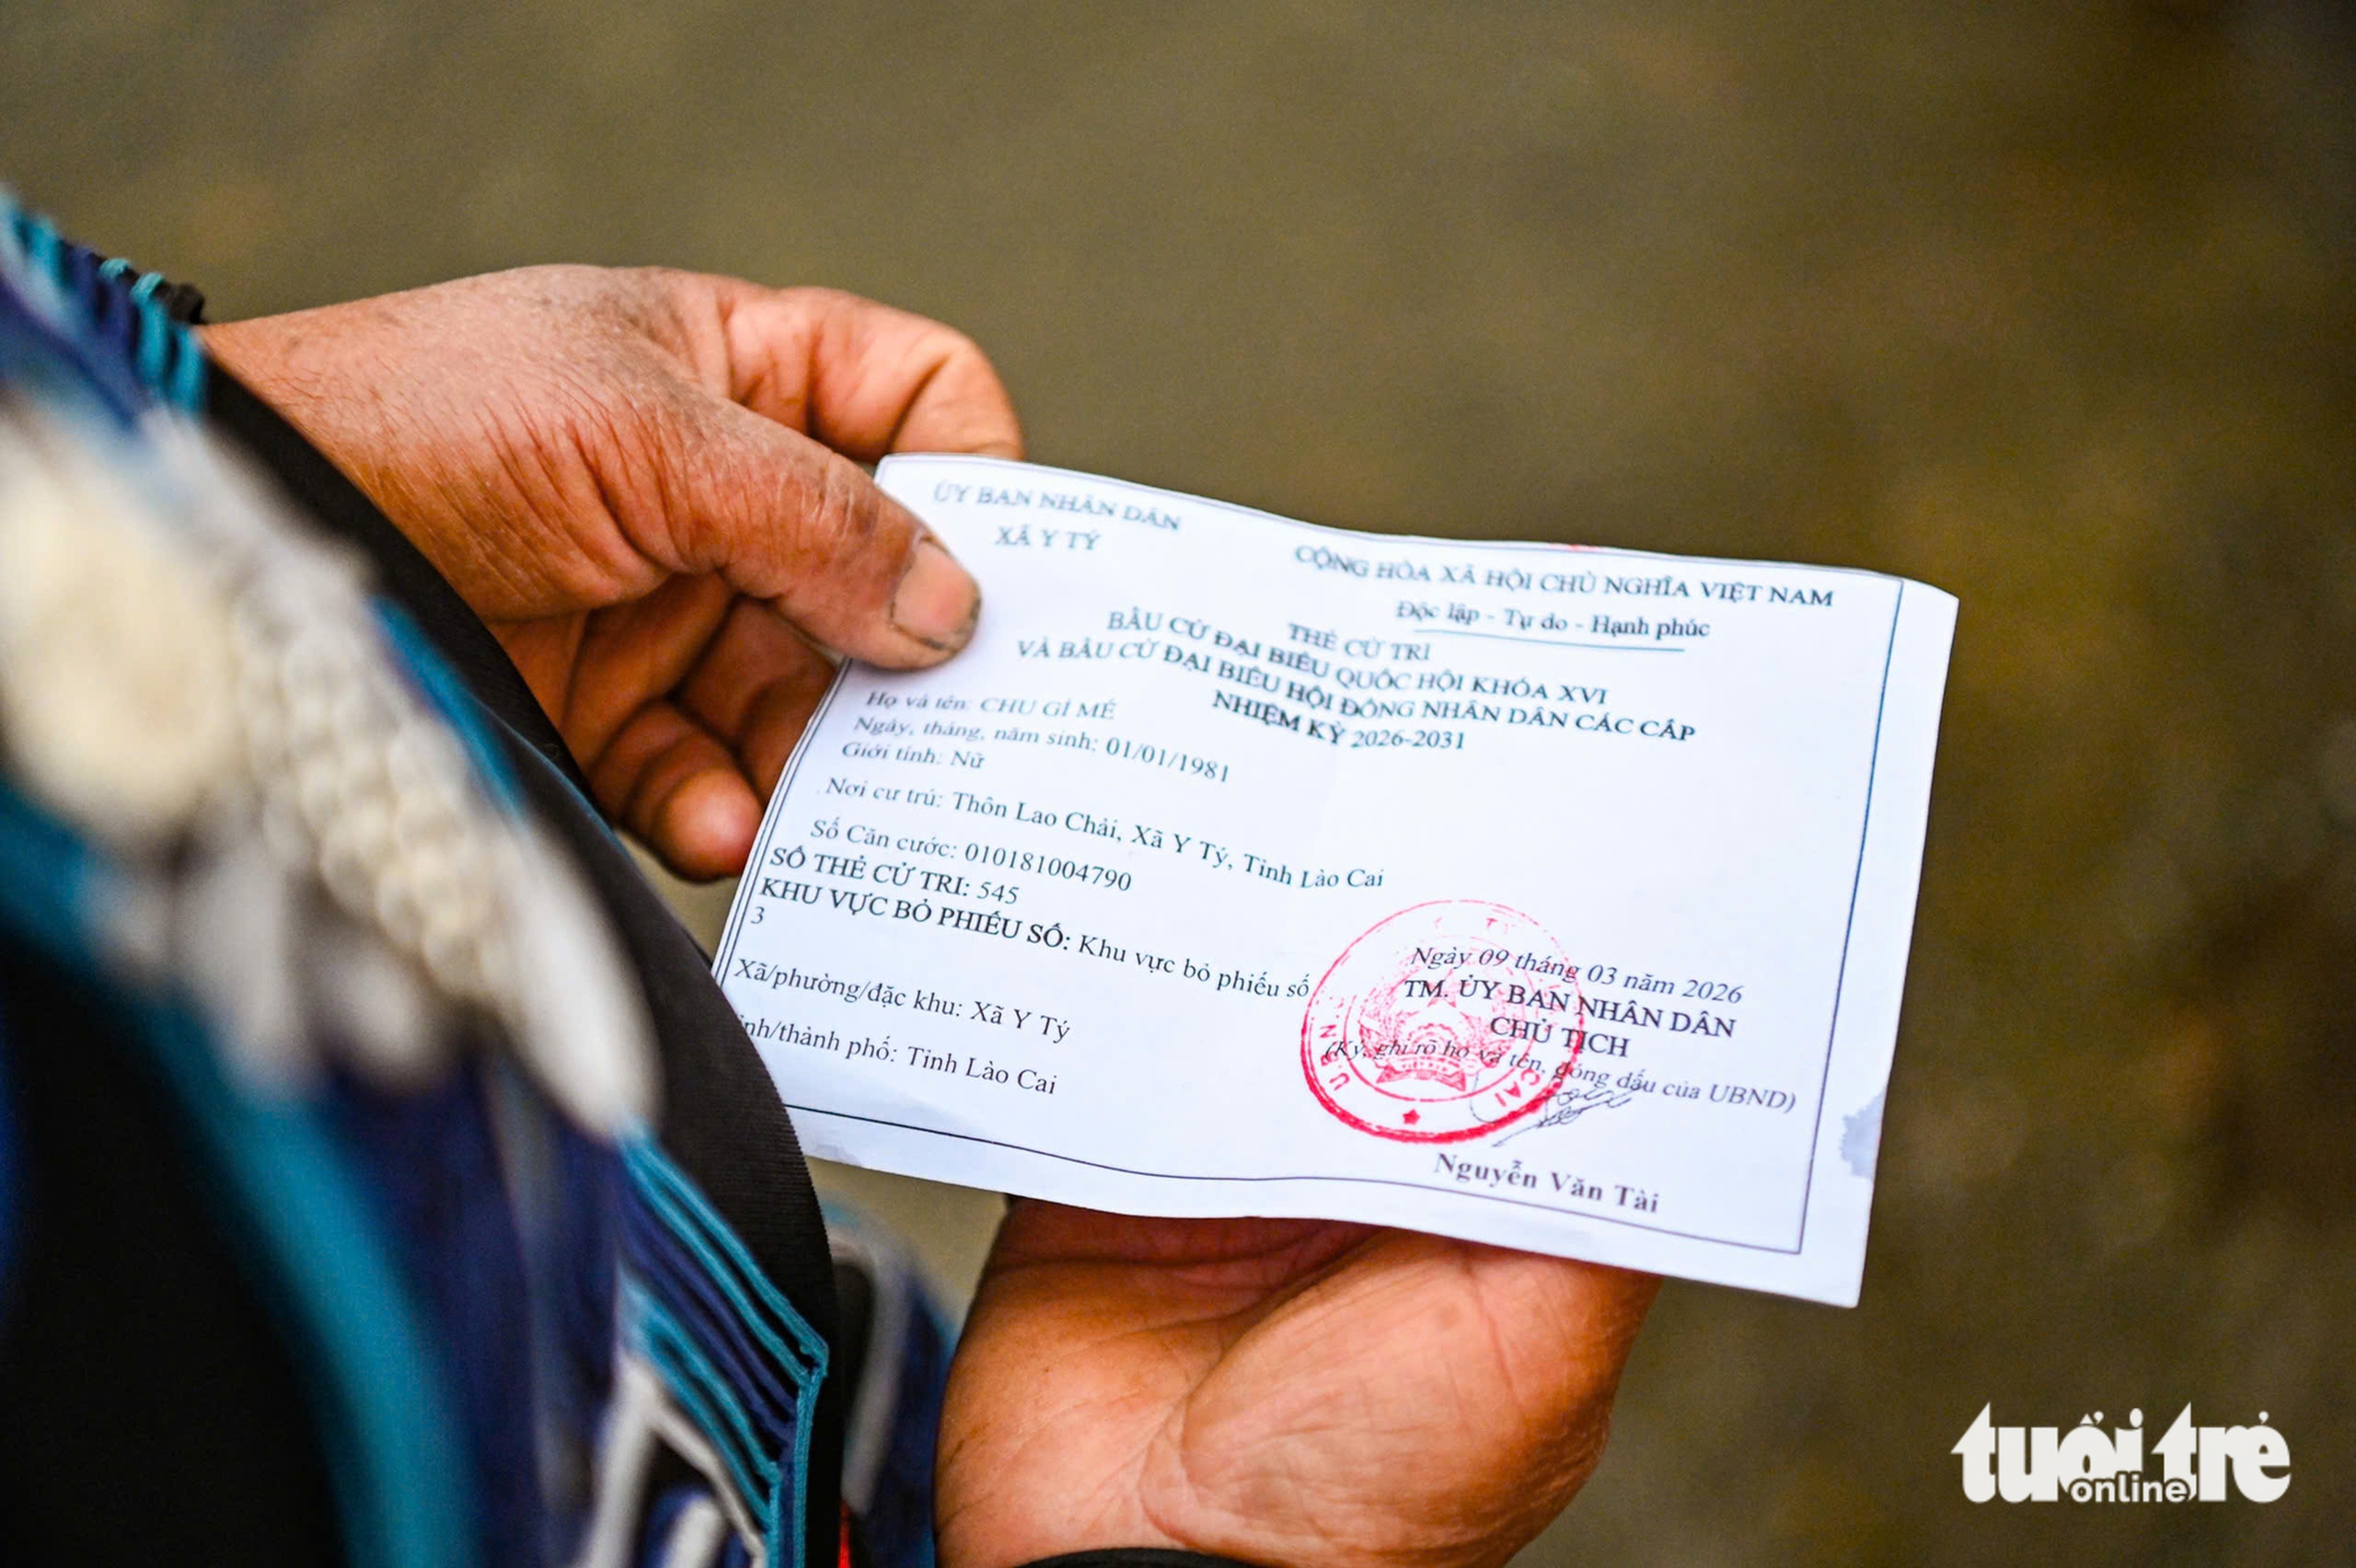 ỦY BAN NHÂN DÂN
XÃ Y TÝ
CỘNG HÒA XÃ HỘI CHỦ NGHĨA VIỆT NAM
Độc lập - Tự do - Hạnh phúc
THẺ CỬ TRI
BẦU CỬ ĐẠI BIỂU QUỐC HỘI KHÓA XVI
VÀ BẦU CỬ ĐẠI BIỂU HỘI ĐỒNG NHÂN DÂN CÁC CẤP
NHIỆM KỲ 2026-2031
Họ và tên: CHU GÌ MÉ
Ngày, tháng, năm sinh: 01/01/1981
Giới tính: Nữ
Nơi cư trú: Thôn Lao Chải, Xã Y Tý, Tỉnh Lào Cai
Số Căn cước: 010181004790
SỐ THẺ CỬ TRI: 545
KHU VỰC BỎ PHIẾU SỐ: Khu vực bỏ phiếu số
3
Xã/phường/đặc khu: Xã Y Tý
ỉnh/thành phố: Tỉnh Lào Cai
Ngày 09 tháng 03 năm 2026
TM. ỦY BAN NHÂN DÂN
CHỦ TỊCH
(Ký, ghi rõ họ và tên, đóng dấu của UBND)
U.B.N.
CAI
Nguyễn Văn Tài
tuổi trẻ
online